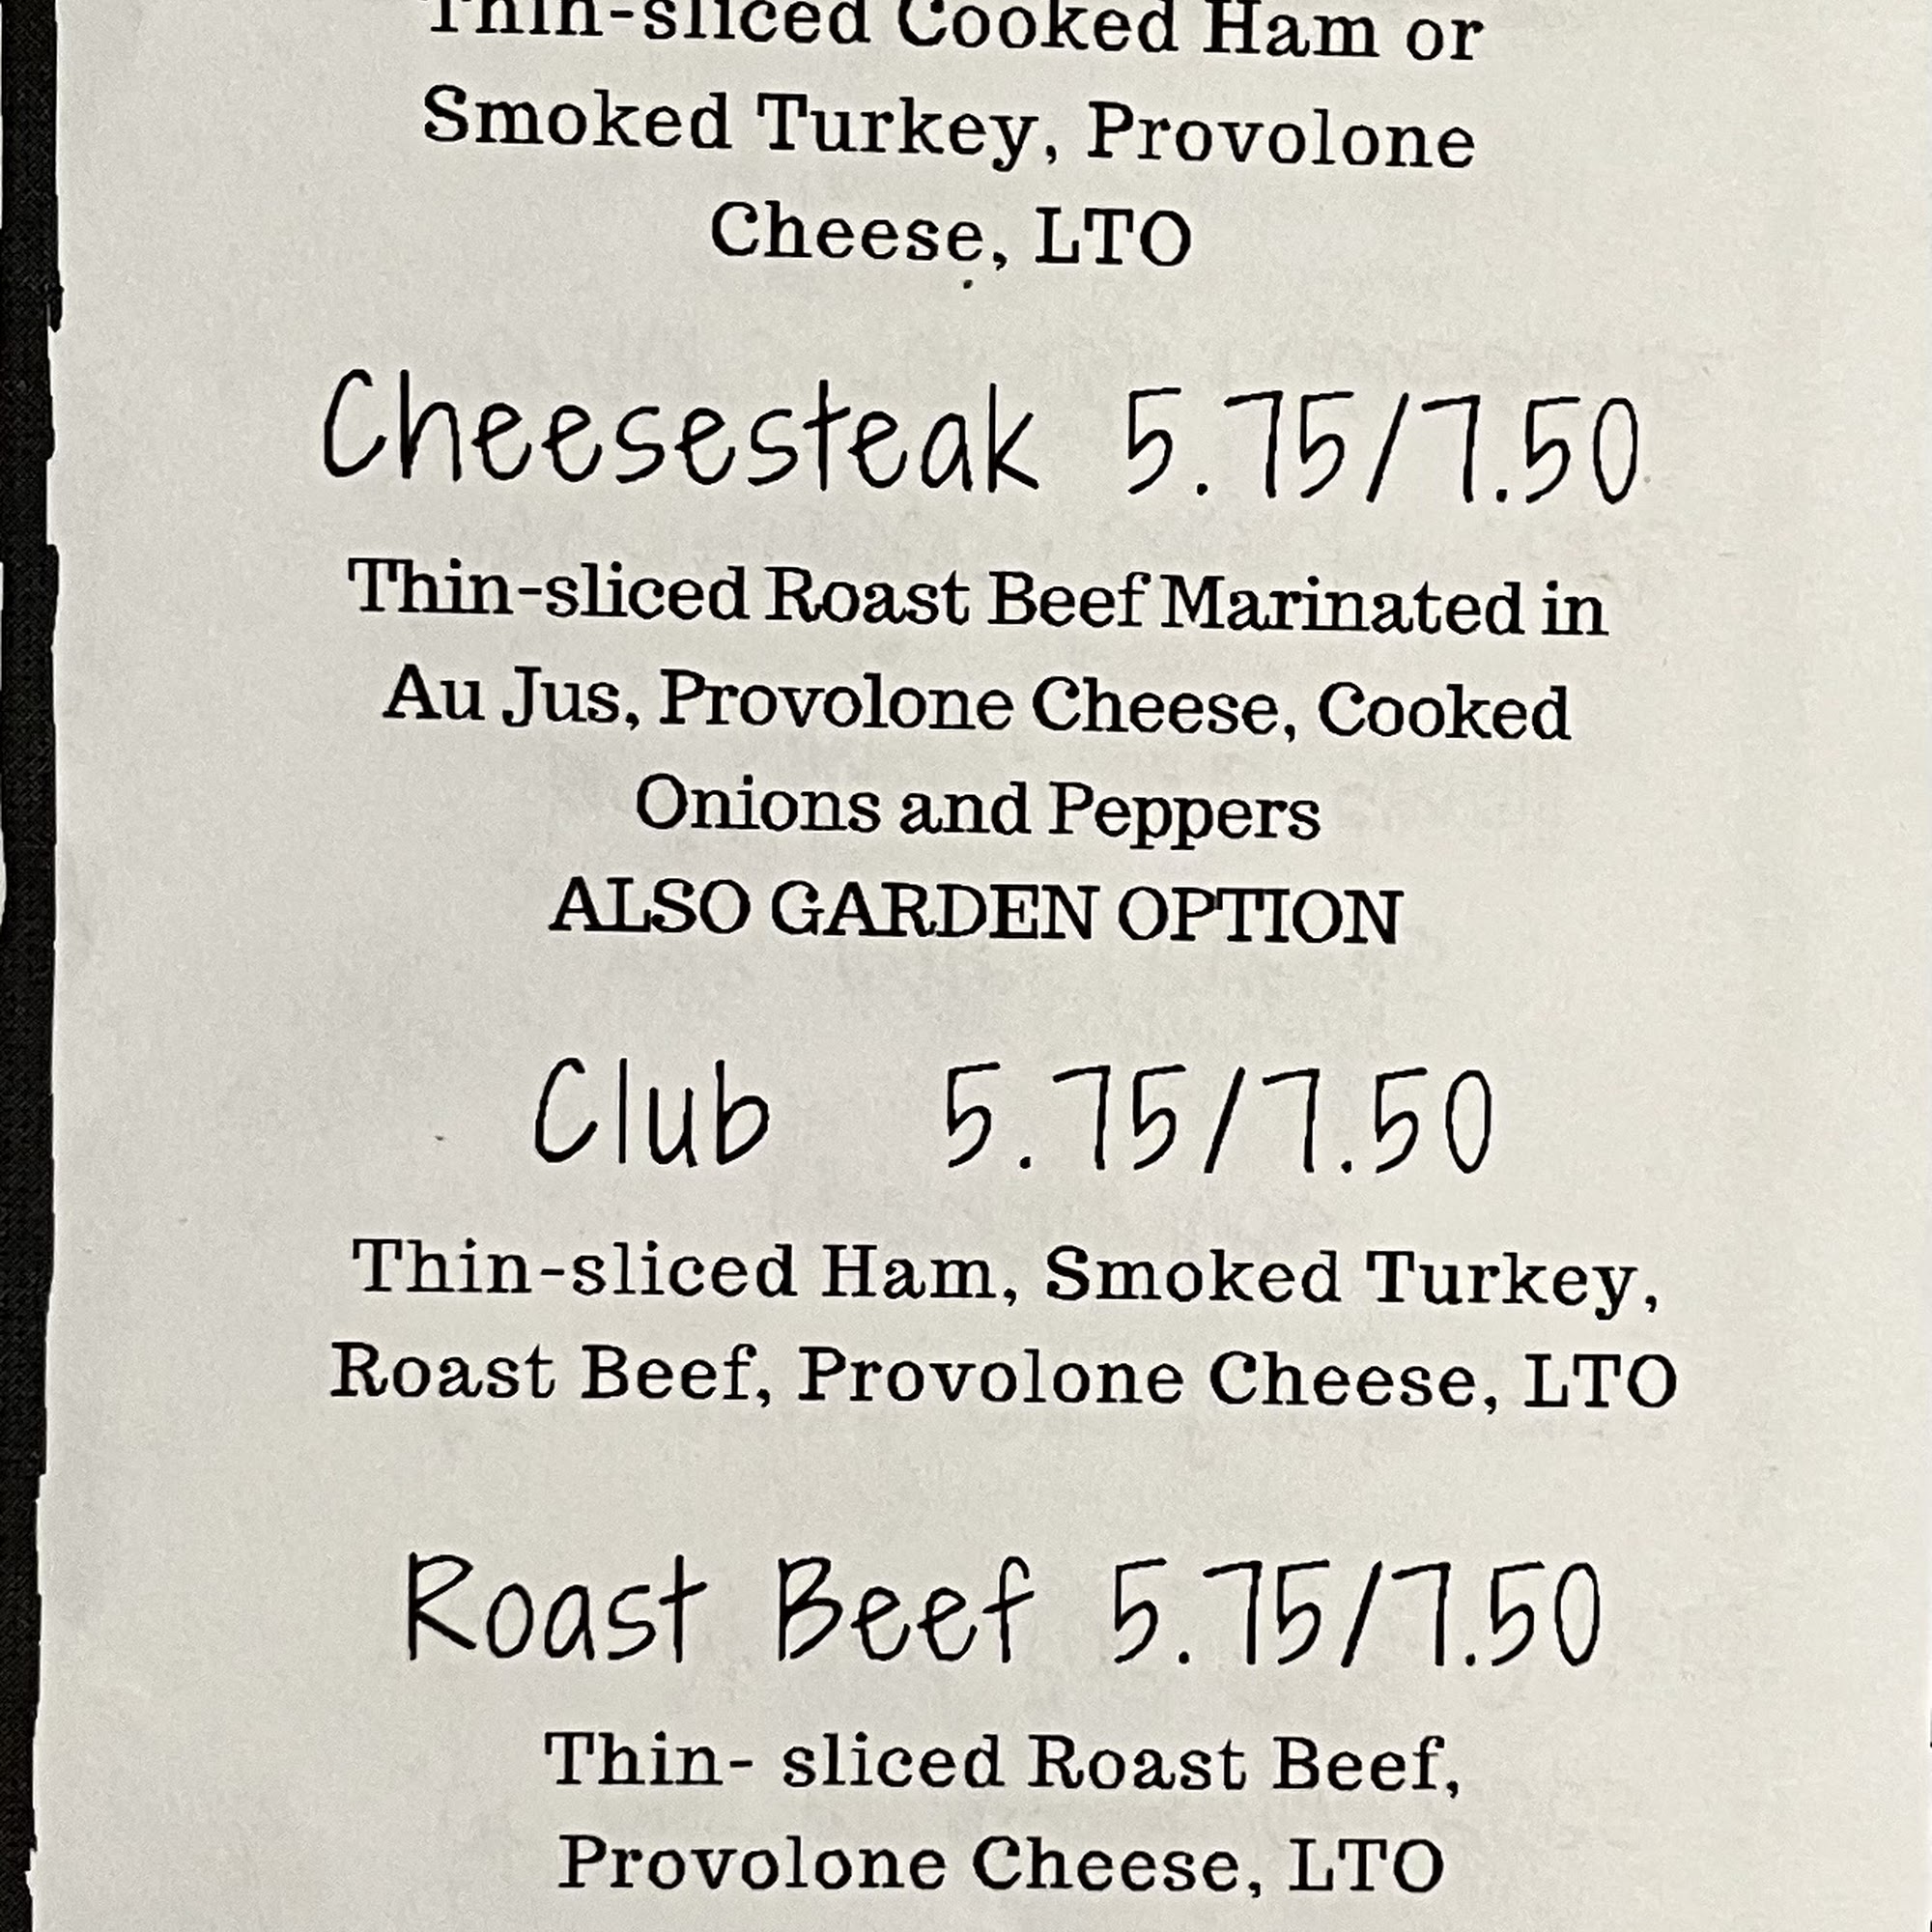 Thin-sliced Cooked Ham or
Smoked Turkey, Provolone
Cheese, LTO
Cheesesteak 5.75/7.50
Thin-sliced Roast Beef Marinated in
Au Jus, Provolone Cheese, Cooked
Onions and Peppers
ALSO GARDEN OPTION
Club 5.75/7.50
Thin-sliced Ham, Smoked Turkey,
Roast Beef, Provolone Cheese, LTO
Roast Beef 5.75/7.50
Thin- sliced Roast Beef,
Provolone Cheese, LTO